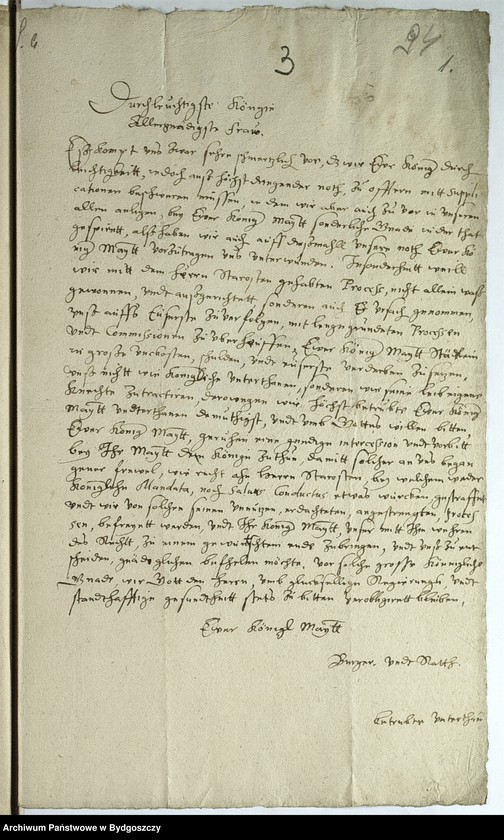 3
94
1.
Durchleuchtigste Königin
Allergnedigste Fraw.
Eß kompt uns zwar sehre schmertzlich vor, dz wir Ewr König Durch
leuchtigkeitt, iedoch auß höchst dringender noth, zu offtern mitt Suppli
cationen beschweren müssen, in dem wir aber auch zu vor in unseren
allen anligen, bey Ewer König Maytt sonderliche Gnade in der that
gespüret, alß haben wir auch auff dießmahl unsere noth Ewer Kö
nig Maytt vorzutragen uns unterwunden. Insonderheitt weill
wir mitt dem Herrn Starosten gehabten Process, nicht allein
gewonnen, undt außgerichtett sonderen auch Er Ursach genommen,
unß auffs Eüserste zu verfolgen, mit ungegründeten Processen
undt Commissionen zu überheuffen, Ewer König Maytt
in große unkosten, schulden, undt eüserste verderben zu setzen,
unß nicht wie Königliche Unterthanen, sonderen wie seine leib eigene
Knechte zutractiren, derowegen wir höchst betrübte Ewer König
Maytt Underthanen demütigst, undt umb Gottes willen bitten
Ewer König Maytt, geruhen eine gnedige intercession undt vorbitt
bey Ihr Maytt dem Könige zuthun, damitt solcher an uns began
gener frevel, wie recht ahn Herrn Starosten, bey welchem weder
Königliche Mandata, noch Salvus Conductus etwas würcken, gestraffet
undt wir von solchen seinen unnützen, erdachteten, angestrengten Proces
sen, befreyett werden, undt Ihr König Maytt unser mitt Ihm
des Rechtt, zu einem gewünschtem ende zubringen, undt unß zu ent
scheiden, gnädiglichen befehlen möchte. Vor solche grosse Königliche
Gnade, wir Gott den Herren, umb glückseelige Regierung, undt
standhafftige gesundtheitt stets zu bitten verobligirett bleiben.
Ewer Königl Maytt
Burger. undt Rath.
Getrewe Unterthan
Archiwum Państwowe w Bydgoszczy